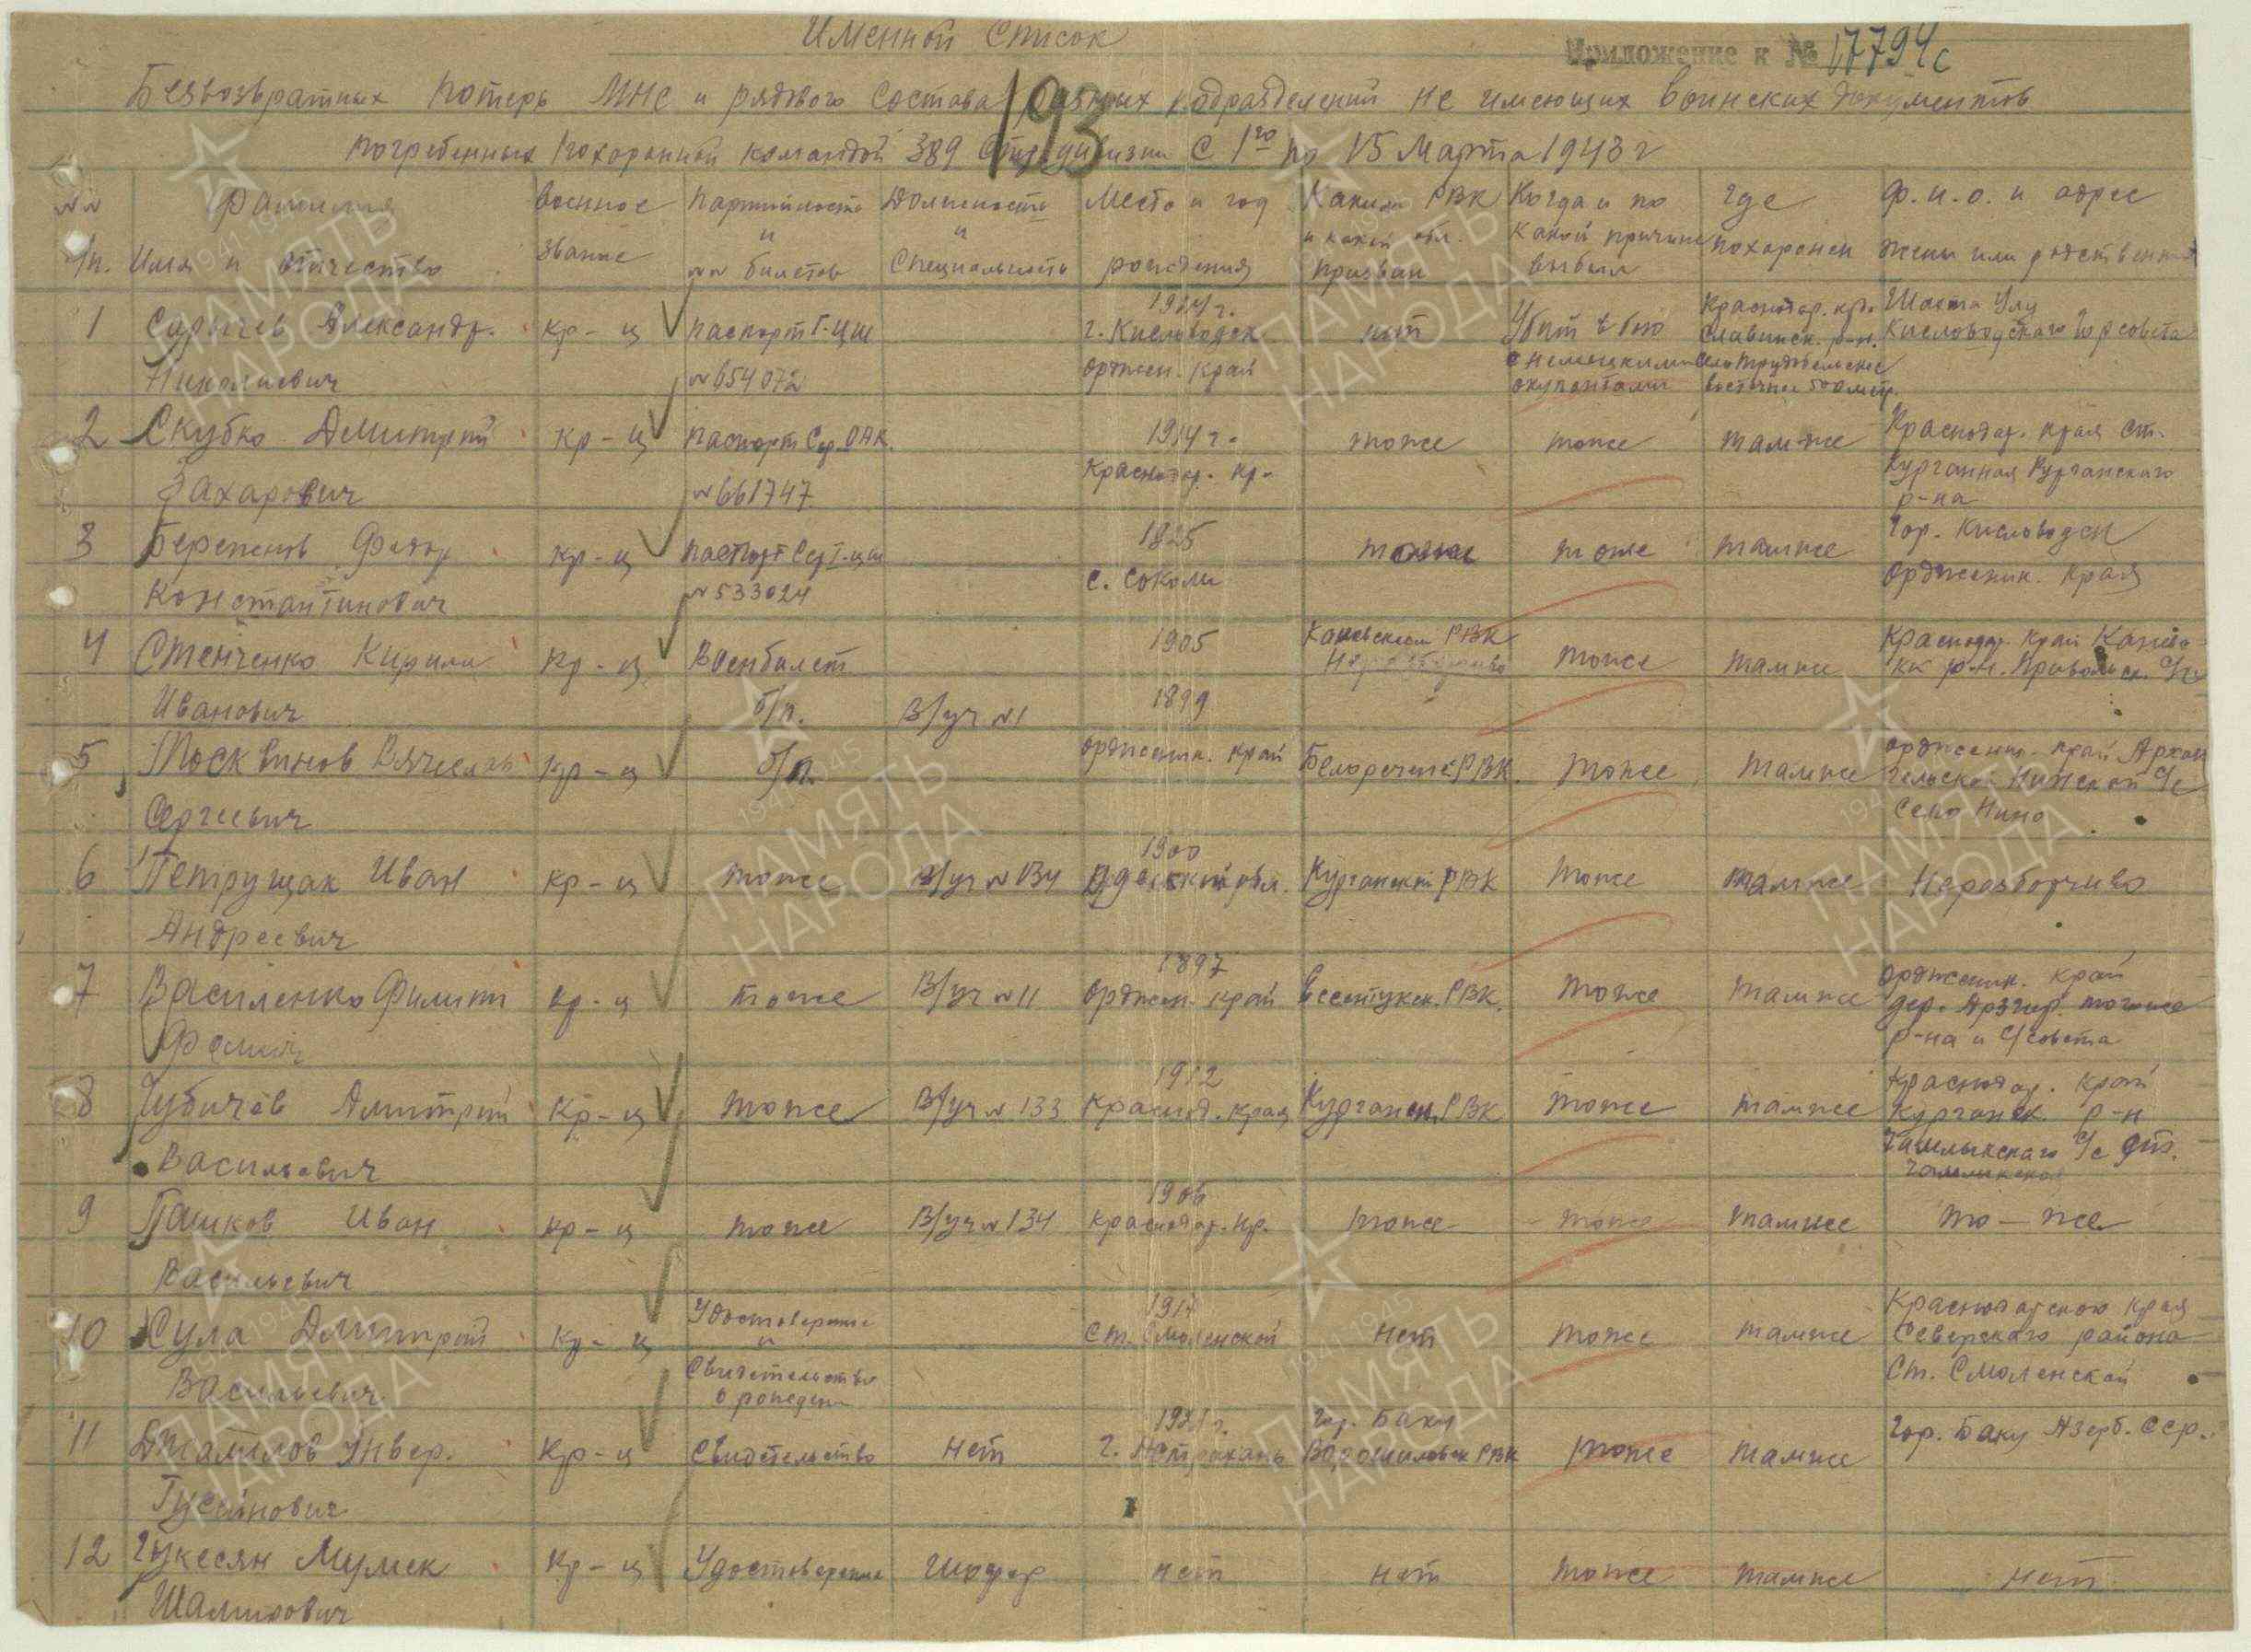 Именной список
Приложение к № 17794с
Безвозвратных потерь МНС и рядового состава разных подразделений не имеющих воинских документов
193
погребенных похоронной командой 389 Стр. дивизии с 1го по 15 марта 1943 г
№№ Фамилия Военное Партийность Должность Место и год Каким РВК Когда и по где Ф.И.О. и адрес
и и и какой обл. какой причине
п/п. Имя и отчество звание №№ билетов специальность рождения призван выбыл похоронен жены или родственников
1914 г. Краснодар. кр. Шахта Улу
1 Сарычев Александр. кр-ц паспорт I-ЦШ г. Кисловодск нет Убит в бою Славинск. р-н. Кисловодского Горсовета
Николаевич №654072 орджен. край с немецкими окупантами восточнее 500 метр.
2 Скубко Дмитрий кр-ц паспорт Сер. ОАК 1914 г. тоже тоже тамже Краснодар. края ст.
Захарович №661747 Краснодар. кр. Курганная Курганского
р-на
3 Береженов Федор кр-ц паспорт Сер I-ЦШ 1925 тоже тоже тамже Гор. Кисловодск
Константинович №533024 с. Соколи Орджоник. края
4 Стенченко Кирилл кр-ц Военбилет 1905 Каневским РВК тоже тамже Краснодар. край Канев-
Неразборчиво ки р-н. Привольск. с/с
Иванович б/п. В/уч №1 1899
5 Москвинов Вячеслав кр-ц б/п. орджоник. край Белоречен. РВК. тоже тамже орджоник. край Архан
гельской Нинской с/с
Сергеевич Село Нино
1900
6 Петрущак Иван кр-ц тоже В/уч №134 Одесской обл. Курганским РВК тоже тамже Неразборчиво
Андреевич
1897 орджоник. край
7 Василенко Филипп кр-ц тоже В/уч №11 Орджен. край Ессентукск. РВК. тоже тамже дер. Арзгир. тогоже
Фомич р-на и с/совета
1912 Краснодар. край
8 Чубичев Дмитрий кр-ц тоже В/уч № 133 Краснод. края Курганск. РВК тоже тамже Курганск. р-н
Васильевич Тамлыкского с/с
1906
9 Пашков Иван кр-ц тоже В/уч №134 Краснодар. кр. тоже тоже тамже то-же
Васильевич
Удостоверение 1917 Краснодарского края
10 Сула Дмитрий кр-ц и ст. Смоленской нет тоже тамже Северского района
Васильевич Свидетельство Ст. Смоленской
о рожден.
1921 г. Гор. Баку
11 Джамилов Энвер. кр-ц Свидетельство нет г. Астрахань Ворошиловск РВК тоже тамже Гор. Баку Азерб. ССР.
Гусейнович
12 Гукесян Мушек кр-ц Удостоверение Шофер нет нет тоже тамже нет
Шамирович